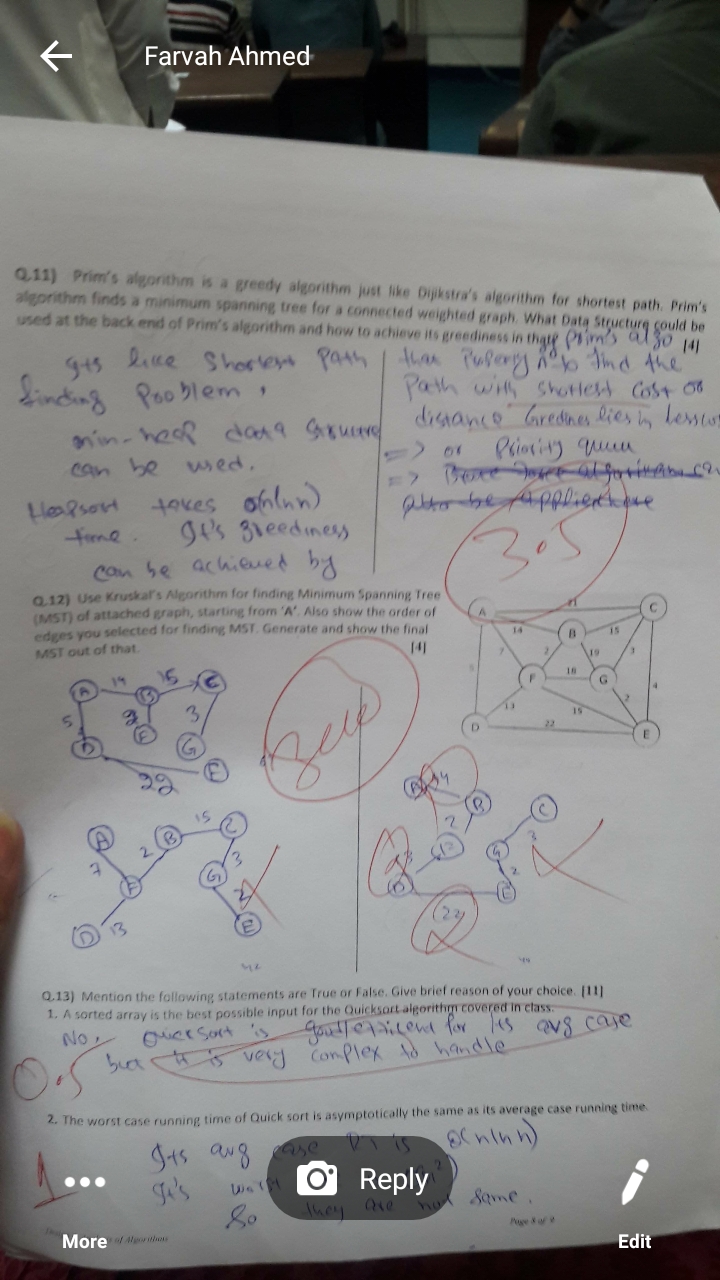 Farvah Ahmed
Q.11) Prim's algorithm is a greedy algorithm just like Dijikstra's algorithm for shortest path. Prim's
algorithm finds a minimum spanning tree for a connected weighted graph. What Data Structure could be
used at the back end of Prim's algorithm and how to achieve its greediness in that? [4]
Prim's algo
Its like Shortest Path
finding Problem.
min-heap data structure
can be used.
Heapsort takes O(nlnn)
time. It's greediness
can be achieved by
that to find the
Path with shortest Cost or
distance Greedines lies in
=> or Priority queue
=>
3.5
Q.12) Use Kruskal's Algorithm for finding Minimum Spanning Tree
(MST) of attached graph, starting from 'A'. Also show the order of
edges you selected for finding MST. Generate and show the final
MST out of that. [4]
A 21 C
14 B 15
5 7 2 19 3
F 18 G
13 15 2 4
D 22 E
A 14 B 15 C
5 2 3
D F G
22 E
Zero
A B 15 C
7 2 3
F G
D 13 2 E
A 14 B C
2 3
F G
13 2
D 22 E
Q.13) Mention the following statements are True or False. Give brief reason of your choice. [11]
1. A sorted array is the best possible input for the Quicksort algorithm covered in class.
No, Quicksort is good/efficient for its avg case
but it is very complex to handle
0.5
2. The worst case running time of Quick sort is asymptotically the same as its average case running time.
Its avg case RT is O(nlnn)
It's worst
So they are not same.
1
Reply
More
Edit
of Algorithms
Page 8 of 9